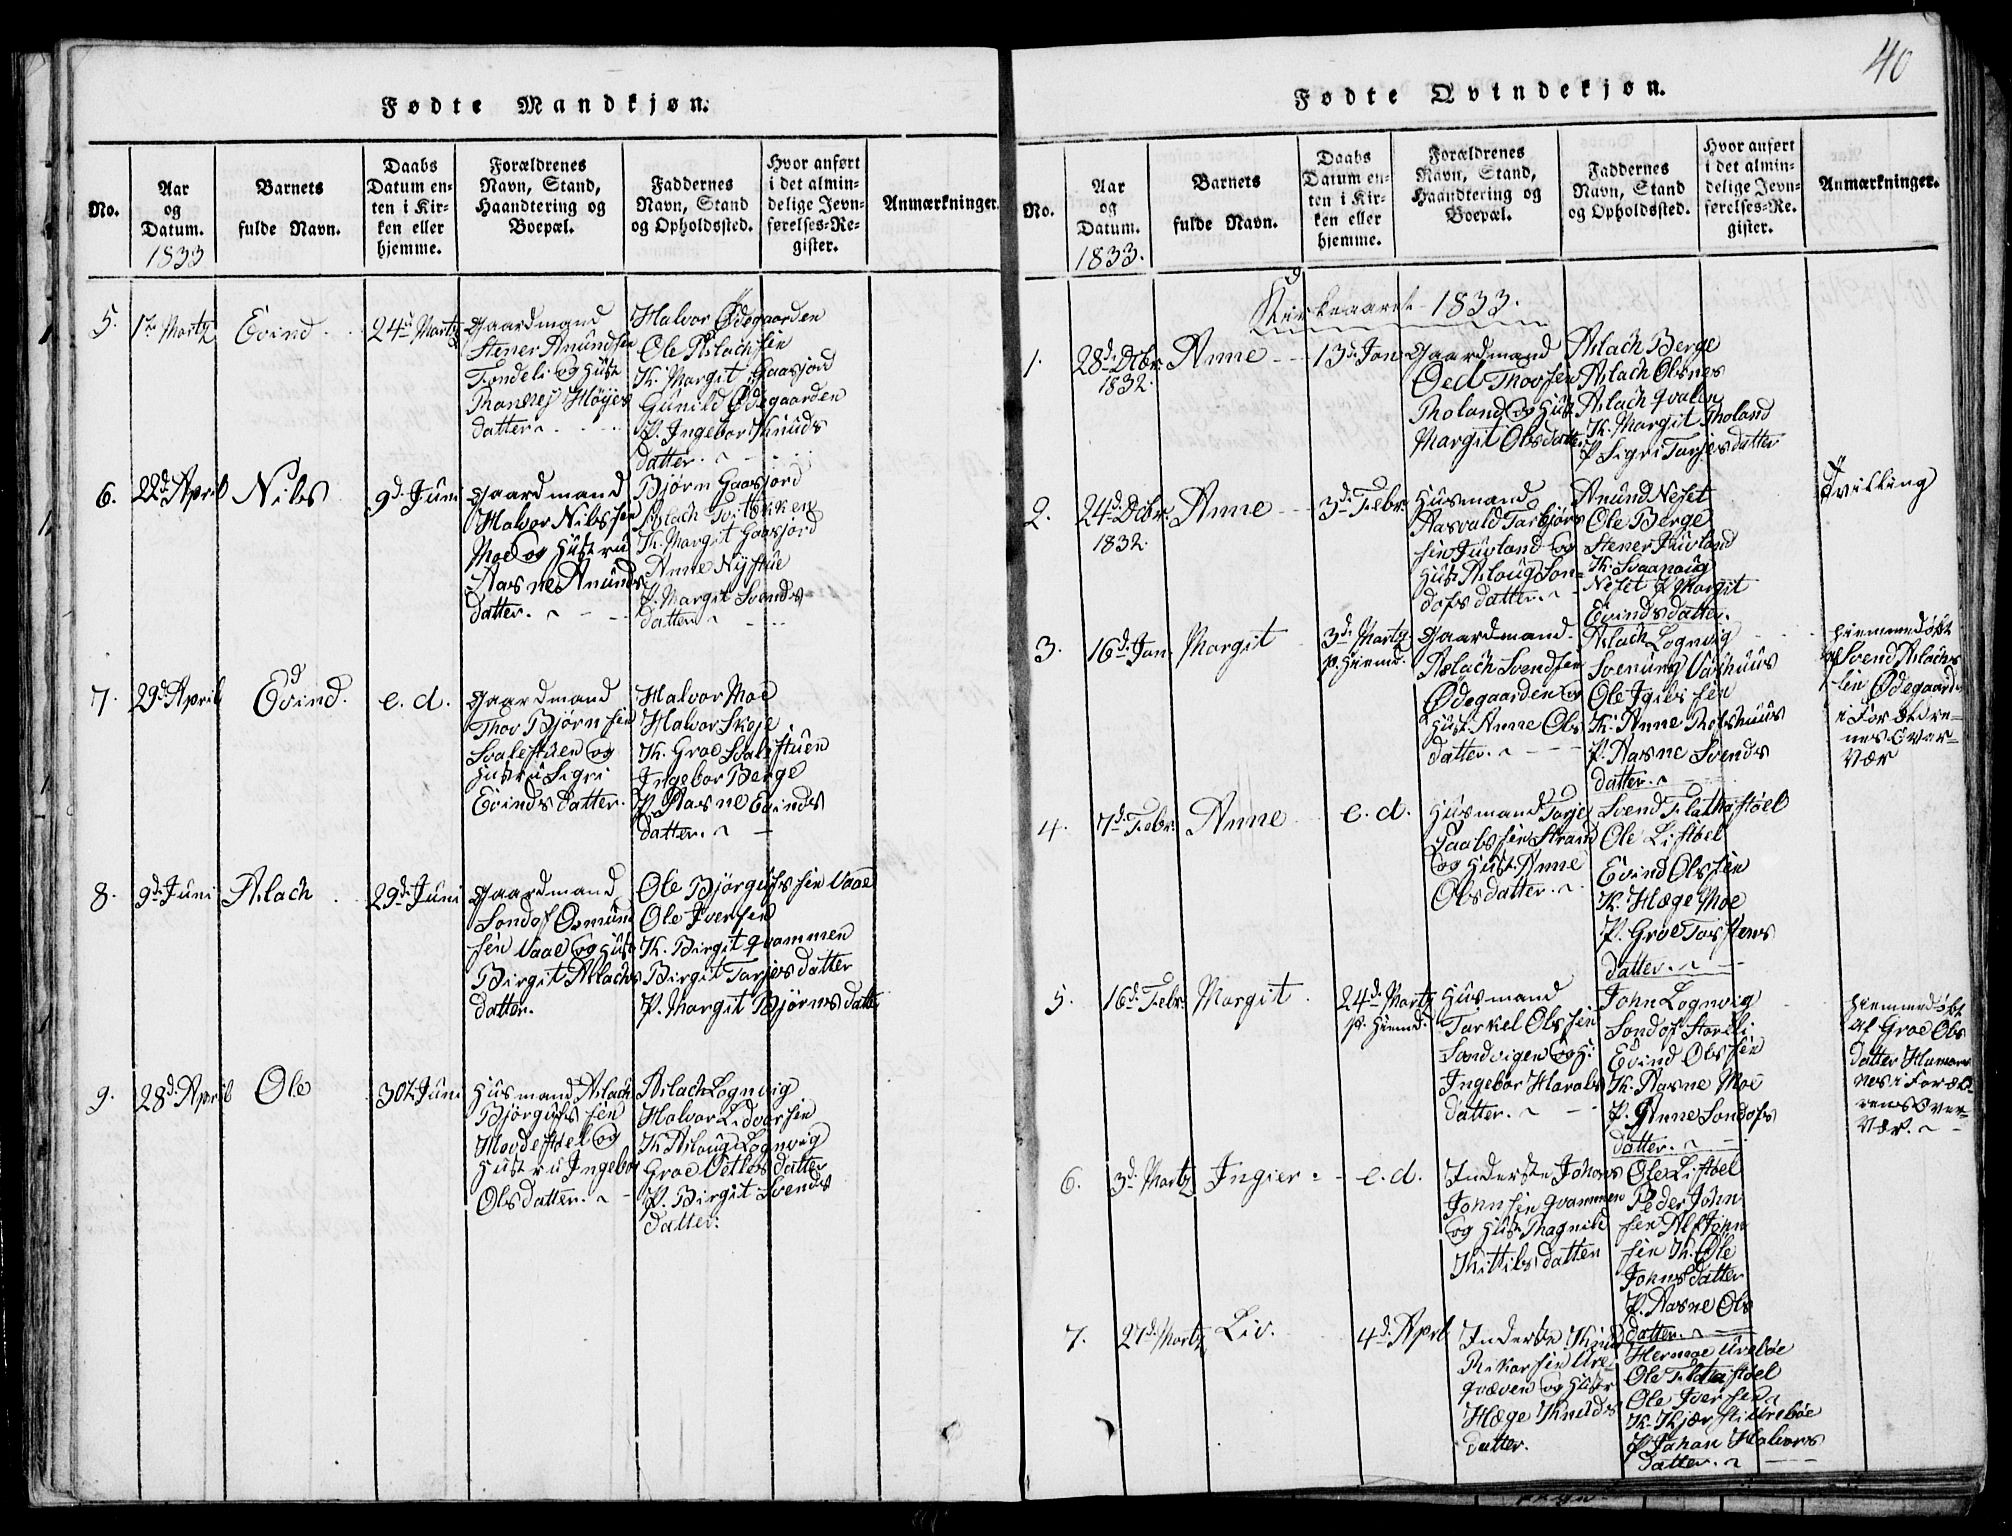 Fødte Mandkjøn.
No.
Aar
og
Datum.
1833
Barnets
fulde Navn.
Daabs
Datum en-
ten i Kir-
ken eller
hjemme.
Forældrenes
Navn, Stand,
Haandtering og
Boepæl.
Faddernes
Navn, Stand
og Opholdssted.
Hvor anført
i det almin-
delige Jevn-
førelses-Re-
gister.
Anmærkninger.
5.
1ste Martz
Evind
24de Martz
Gaardmand
Stener Anundsen
og Hust
Høyes
datter
Halvor Ødegaarden
Ole Aslachsen
K. Margit Gaasjord
Gunild Ødegaarden
P. Ingebor Knuds
datter.
6.
22d April
Niels
9d Juni
Gaardmand
Halvor Nielssen
Moe og Hustru
Aasne Anunds
datter.
Bjørn Gaasjord
Aslach
K. Margit Gaasjord
Anne Nystue
P. Margit Svends
datter
7.
29d April
Evind.
e. d.
Gaardmand
Thor Bjørnsen
Svalestuen og
Hustru Sigri
Evindsdatter.
Halvor Moe
Halvor Skoje
K. Groe Svalestuen
Ingebor Berge
P. Aasne Evinds
datter.
8.
9d Juni
Aslach
29d Juni
Gaardmand
Sondof Osmund
sen Vaae og Hust
Birgit Aslachs
datter.
Ole Bjørgufssen Vaae
Ole Iversen
K. Birgit Qvammen
Birgit Tarjeisdatter
P. Margit Bjørnsdatter
9.
28d April
Ole
30t Juni
Husmand Aslach
Bjørgufssen
og
Hustru Ingebor
Olsdatter.
Aslach Lognvig
Halvor Lidvorsen
K. Aslaug Lognvig
Groe Vetlesdatter
P. Birgit Svends
datter.
40
Fødte Qvindekjøn.
No.
Aar
og
Datum.
1833.
Barnets
fulde Navn.
Daabs
Datum en-
ten i Kir-
ken eller
hjemme.
Forældrenes
Navn, Stand,
Haandtering og
Boepæl.
Faddernes
Navn, Stand
og Opholdssted.
Hvor anført
i det almin-
delige Jevn-
førelses-Re-
gister.
Anmærkninger.
Kirkeaaret 1833.
1.
28d Dcbr.
1832.
Anne
13d Jan
Gaardmand
Oed Thovsen
Tholand og Hust
Margit Olsdatter
Aslach Berge
Aslach Olsnes
Aslach Qvalen
K. Margit Tholand
P. Sigri Tarjesdatter
2.
24d Dcbr.
1832.
Anne
3d Febr.
Husmand
Aasvald Torbjørn
sen Juvland og
Hust Aslaug Son-
dofsdatter.
Anund Neset
Ole Berge
Stener Juvland
K. Svanaug
Neset P. Margit
Evindsdatter.
Tvilling
3.
16d Jan
Margit
3d Martz
p. Hiemd.
Gaardmand
Aslach Svendsen
Ødegaarden og
Hust. Anne Ols
datter.
Aslach Lognvig
Svenung Vashuus
Ole Igelssen
K. Anne
P. Aasne Svends
datter.
Hiemmedøbt
af Svend Aslach
sen Ødegaarden
i Forældre-
nes Over-
vær
4.
7d Febr.
Anne
e. d.
Husmand Tarje
Strand
og Hust. Anne
Olsdatter.
Svend
Ole Listøel
Evind Olssen
K. Hæge Moe
P. Groe Torstens
datter.
5.
16d Febr.
Margit
24d Martz
p. Hiemd.
Husmand
Tarkel Olssen
Sandvigen og H.
Ingebor Haralds
datter.
John Lognvig
Sondof Storeli
Evind Olssen
K. Aasne Moe
P. Anne Sondofs
datter.
Hiemmedøbt
af Groe Ols
datter Hamar-
nes i Foræld-
rens Over-
vær.
6.
3d Martz
Ingier
e. d.
Inderste Johans
Johnsen Qvammen
og Hust. Thagnild
Kittilsdatter
Ole Listøel
Peder John
sen Alf John
sen K. Ole
Johnsdatter
P. Aasne Ols
datter.
7.
27d Martz
Liv.
4d April
Inderste Knud
Rikarsen Ure-
qvæven og Hustr
Hæge Knuds
datter.
Hermoe Urebøe
Ole
Ole Iversen
K. Urebøe
P. Johan Halvors
datter.